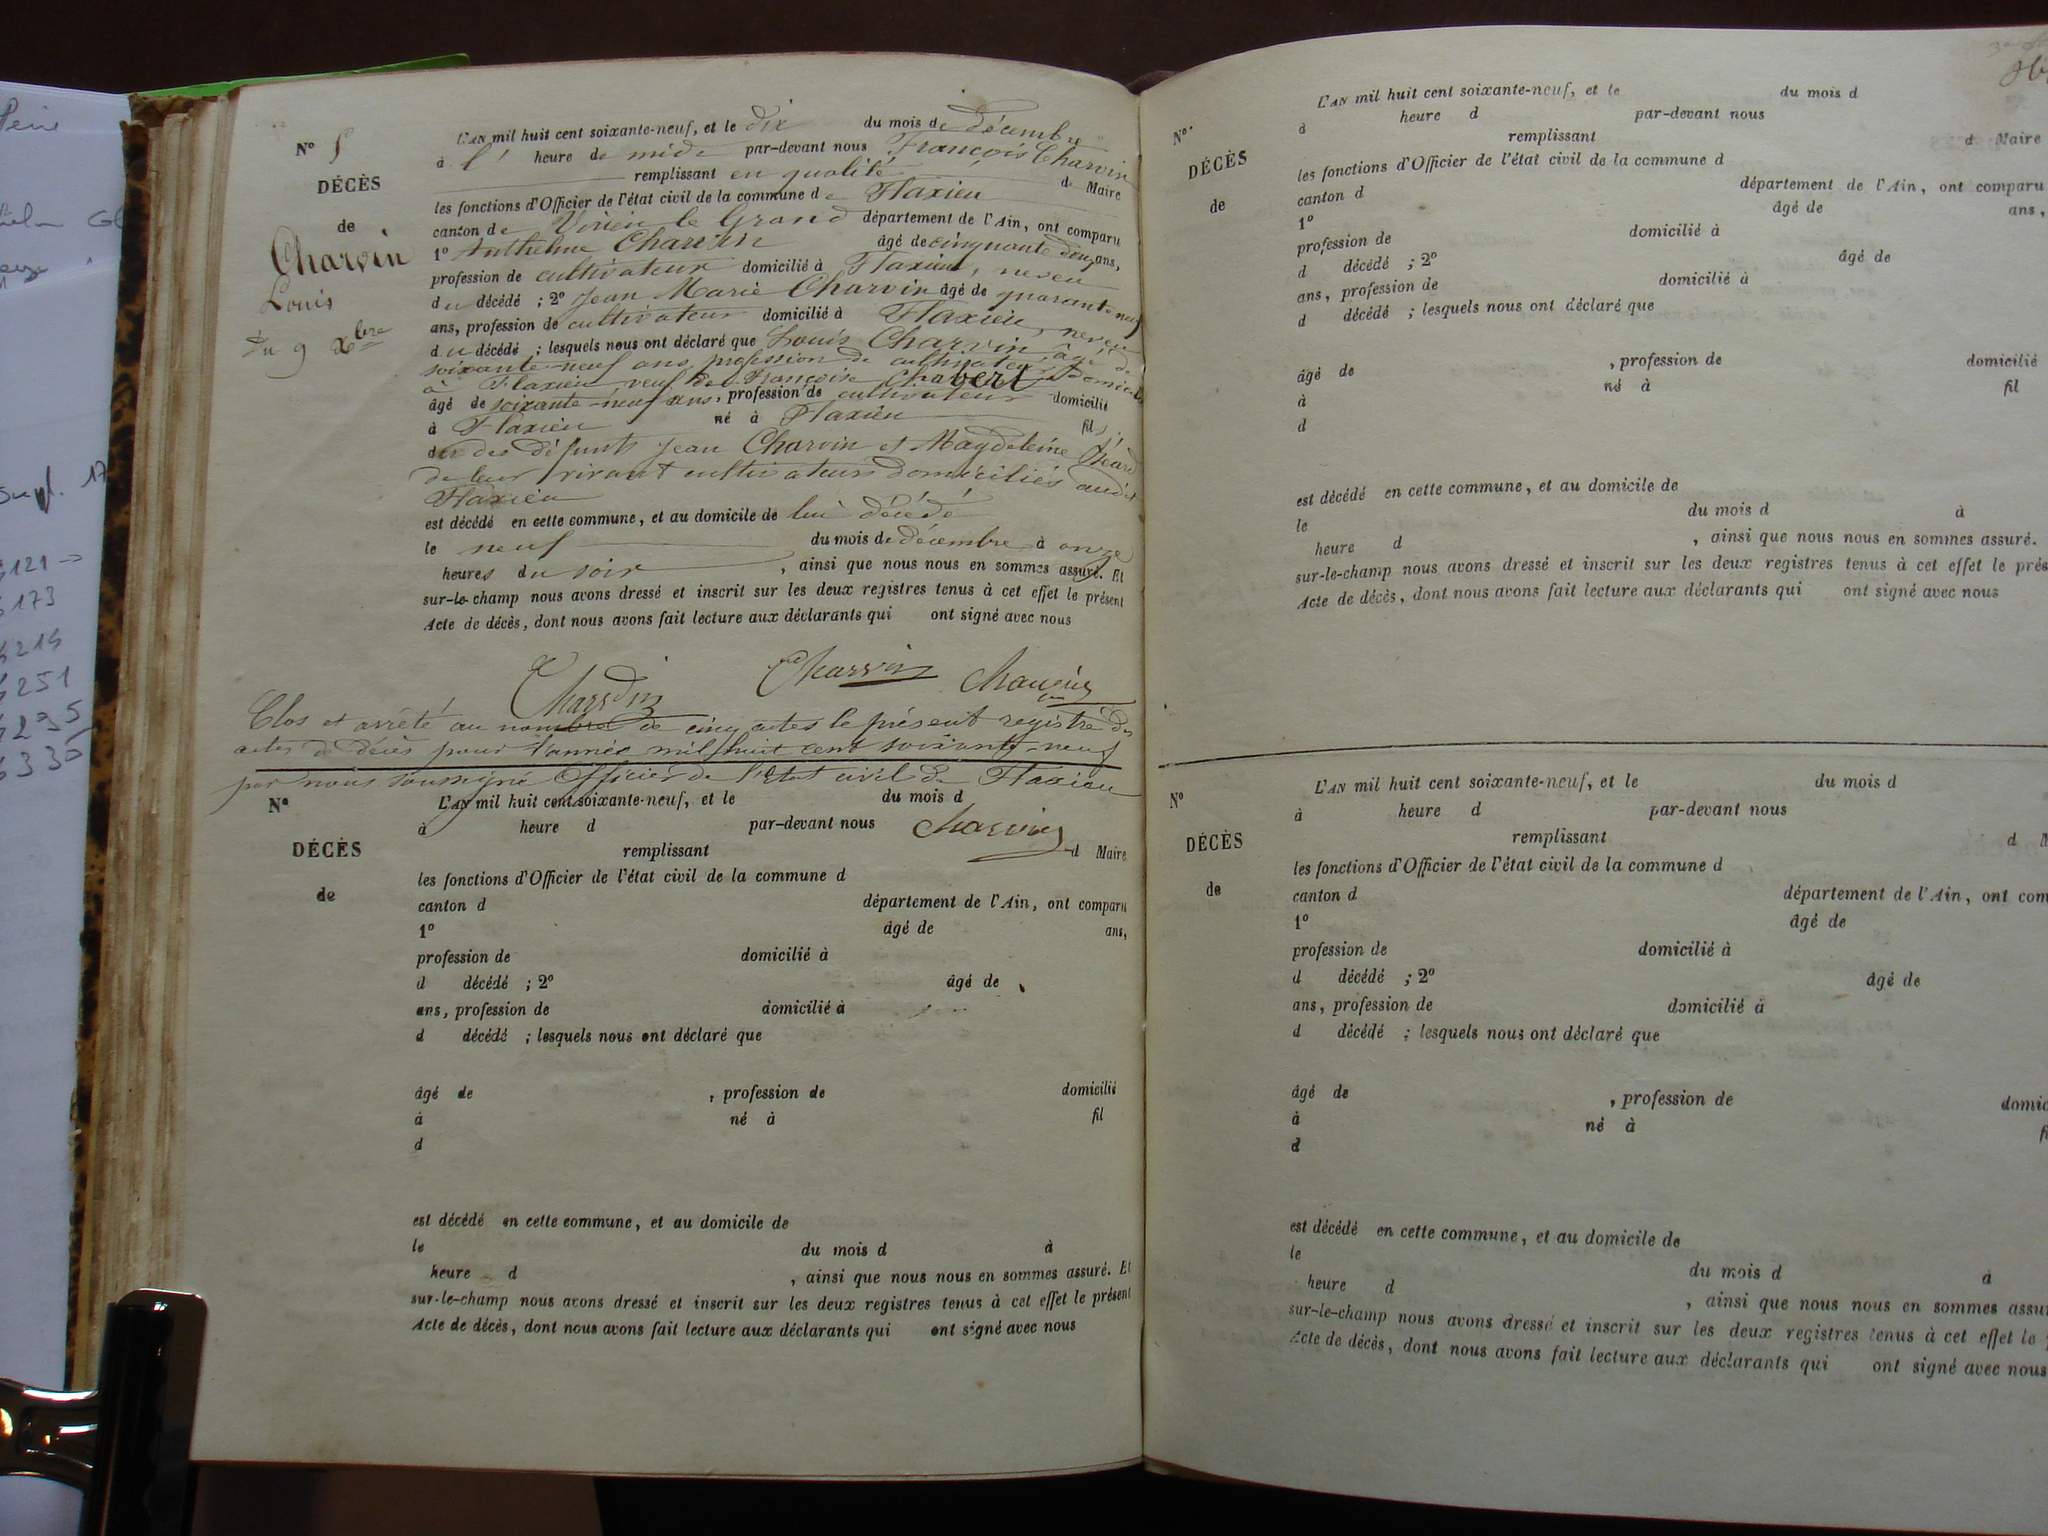 Nº 5
DÉCÈS
de
Charvin
Louis
du 9 Xbre
L'AN mil huit cent soixante-neuf, et le dix du mois de décembre
à l' heure de midi par-devant nous François Charvin
remplissant en qualité de Maire
les fonctions d'Officier de l'état civil de la commune de Flaxieu
canton de Virieu le Grand département de l'Ain, ont comparu
1º Anthelme Charvin âgé de cinquante deux ans,
profession de cultivateur domicilié à Flaxieu, neveu
du décédé ; 2º Jean Marie Charvin âgé de quarante neuf
ans, profession de cultivateur domicilié à Flaxieu, neveu
du décédé ; lesquels nous ont déclaré que Louis Charvin, âgé de
soixante-neuf ans profession de cultivateur domicilié
à Flaxieu veuf de Françoise Chabert
âgé de soixante-neuf ans, profession de cultivateur domicilié
à Flaxieu né à Flaxieu fils
des défunts Jean Charvin et Magdeleine
de leur vivant cultivateurs domiciliés audit
Flaxieu
est décédé en cette commune, et au domicile de lui décédé
le neuf du mois de décembre à onze
heures du soir, ainsi que nous nous en sommes assuré. Et
sur-le-champ nous avons dressé et inscrit sur les deux registres tenus à cet effet le présent
Acte de décès, dont nous avons fait lecture aux déclarants qui ont signé avec nous
Charvin Charvin Charvin
Clos et arrêté au nombre de cinq actes le présent registre des
actes de décès pour l'année mil huit cent soixante-neuf
par nous soussigné Officier de l'Etat civil de Flaxieu
Charvin
Nº
DÉCÈS
de
L'AN mil huit cent soixante-neuf, et le du mois d
à heure d par-devant nous
remplissant d Maire
les fonctions d'Officier de l'état civil de la commune d
canton d département de l'Ain, ont comparu
1º âgé de ans,
profession de domicilié à
d décédé ; 2º âgé de
ans, profession de domicilié à
d décédé ; lesquels nous ont déclaré que
âgé de , profession de domicilié
à né à fil
d
est décédé en cette commune, et au domicile de
le du mois d à
heure d , ainsi que nous nous en sommes assuré. Et
sur-le-champ nous avons dressé et inscrit sur les deux registres tenus à cet effet le présent
Acte de décès, dont nous avons fait lecture aux déclarants qui ont signé avec nous
Nº
DÉCÈS
de
L'AN mil huit cent soixante-neuf, et le du mois d
à heure d par-devant nous
remplissant d Maire
les fonctions d'Officier de l'état civil de la commune d
canton d département de l'Ain, ont comparu
1º âgé de ans,
profession de domicilié à
d décédé ; 2º âgé de
ans, profession de domicilié à
d décédé ; lesquels nous ont déclaré que
âgé de , profession de domicilié
à né à fil
d
est décédé en cette commune, et au domicile de
le du mois d à
heure d , ainsi que nous nous en sommes assuré.
sur-le-champ nous avons dressé et inscrit sur les deux registres tenus à cet effet le prés
Acte de décès, dont nous avons fait lecture aux déclarants qui ont signé avec nous
Nº
DÉCÈS
de
L'AN mil huit cent soixante-neuf, et le du mois d
à heure d par-devant nous
remplissant d M
les fonctions d'Officier de l'état civil de la commune d
canton d département de l'Ain, ont com
1º âgé de
profession de domicilié à
d décédé ; 2º âgé de
ans, profession de domicilié à
d décédé ; lesquels nous ont déclaré que
âgé de , profession de domic
à né à fi
d
est décédé en cette commune, et au domicile de
le du mois d à
heure d , ainsi que nous nous en sommes assu
sur-le-champ nous avons dressé et inscrit sur les deux registres tenus à cet effet le
Acte de décès, dont nous avons fait lecture aux déclarants qui ont signé avec nous
121
173
219
251
330